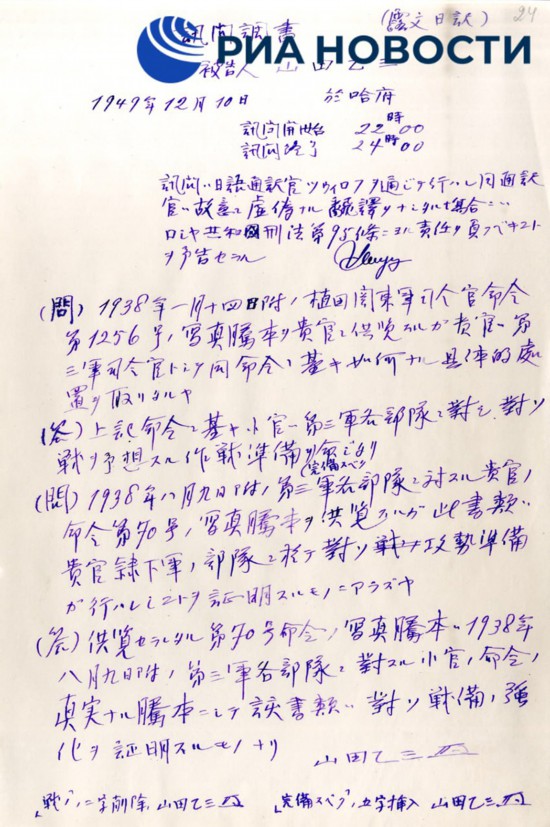 (露文日訳)
24
訊問調書
РИА НОВОСТИ
被告人 山田乙三
1949年12月10日 於哈府
訊問開始 22時00
訊問終了 24時00
訊問ハ日語通訳官ツウィロフヲ通ジテ行ハレ同通訳
官ハ故意ニ虚偽ナル飜譯ヲナシタル場合ニハ
ロシヤ共和國刑法第95條ニヨル責任ヲ負フベキコト
ヲ予告セラル
(問) 1938年一月十四日附ノ植田関東軍司令官命令
第1256号ノ寫真謄本ヲ貴官ニ供覧スルガ貴官ハ第
三軍司令官トシテ同命令ニ基キ如何ナル具体的處
置ヲ取リタルヤ
(答) 上記命令ニ基キ小官ハ第三軍各部隊ニ對シ對ソ
戦ヲ予想スル作戦準備ヲ命ジタリ
完備スベク
(問) 1938年八月九日附ノ第三軍各部隊ニ対スル貴官ノ
命令第90号ノ寫真謄本ヲ供覧スルガ此書類ハ
貴官隷下軍ノ部隊ニ於テ對ソ戦ヲ攻勢準備
ガ行ハレシコトヲ証明スルモノニアラズヤ
(答) 供覧セラレタル第90号命令ノ寫真謄本ハ1938年
八月九日附ノ第三軍各部隊ニ對スル小官ノ命令ノ
真実ナル謄本ニシテ該書類ハ對ソ戦備ノ強
化ヲ証明スルモノナリ
山田乙三
「戦ヲ」ノ二字削除 山田乙三 「完備スベク」ノ五字挿入 山田乙三